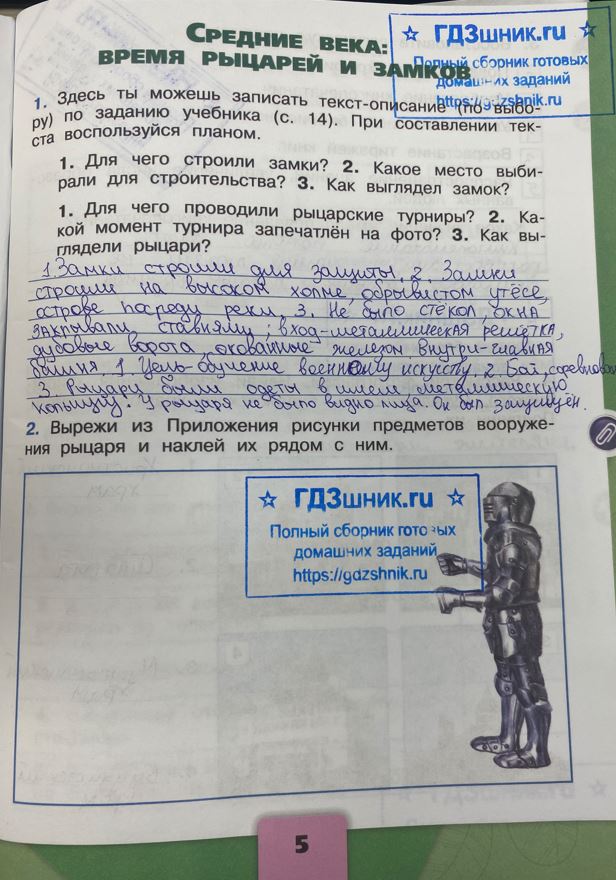 СРЕДНИЕ ВЕКА:
ВРЕМЯ РЫЦАРЕЙ И ЗАМКОВ
☆ ГДЗшник.ru ☆
Полный сборник готовых
домашних заданий
https://gdzshnik.ru
1. Здесь ты можешь записать текст-описание (по выбо-
ру) по заданию учебника (с. 14). При составлении тек-
ста воспользуйся планом.
1. Для чего строили замки? 2. Какое место выби-
рали для строительства? 3. Как выглядел замок?
1. Для чего проводили рыцарские турниры? 2. Ка-
кой момент турнира запечатлён на фото? 3. Как вы-
глядели рыцари?
1 Замки строили для защиты. 2. Замки
строили на высоком холме, обрывистом утёсе,
острове посреди реки. 3. Не было стёкол, окна
закрывали ставнями; вход-металлическая решётка,
дубовые ворота, окованные железом внутри-главная
башня. 1. Цель-обучение военному искусству. 2. Бой, соревнован
3. Рыцари были одеты в шлем, металлическую
кольчугу. У рыцаря не было видно лица. Он был защищён.
2. Вырежи из Приложения рисунки предметов вооруже-
ния рыцаря и наклей их рядом с ним.
☆ ГДЗшник.ru ☆
Полный сборник готовых
домашних заданий
https://gdzshnik.ru
5